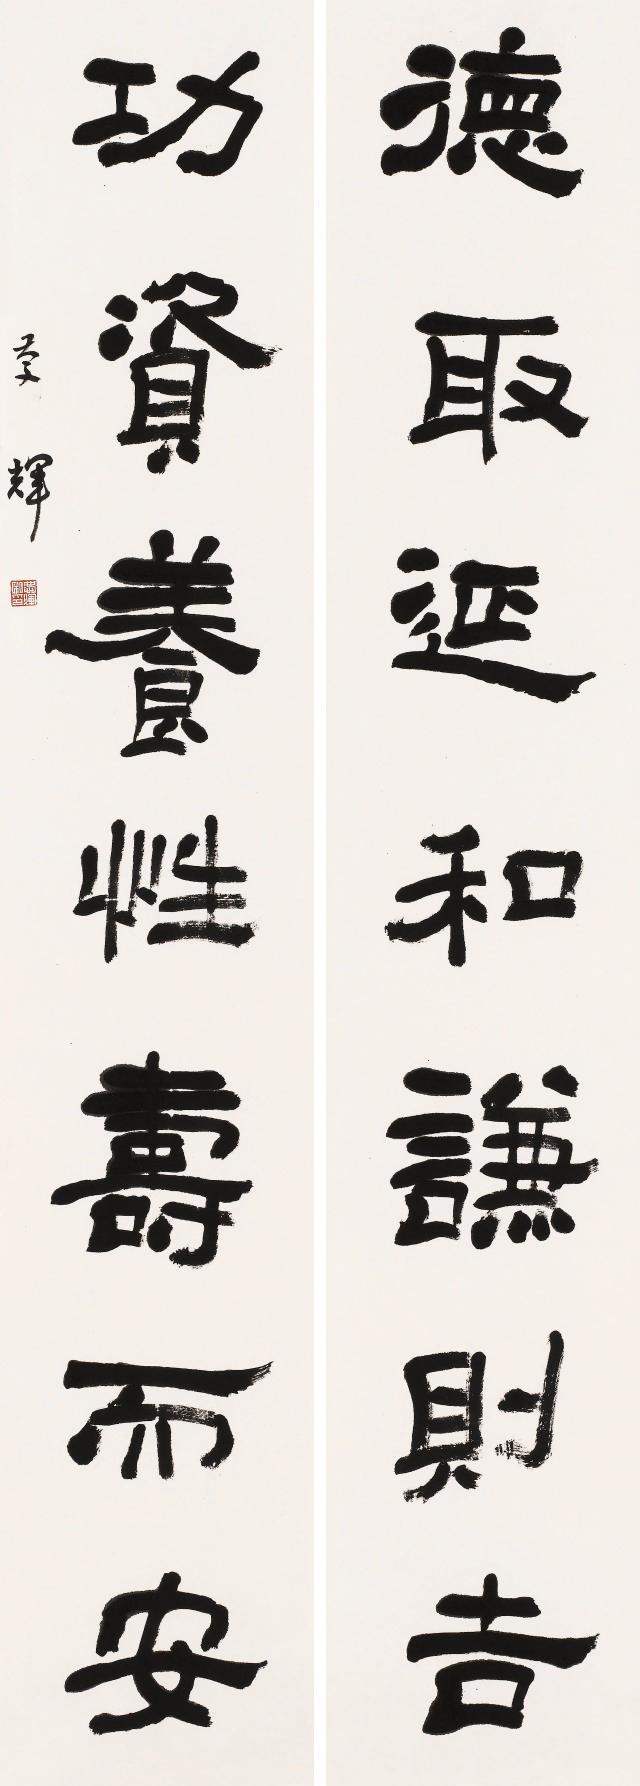 德取延和謙則吉
功資養性壽而安
輝